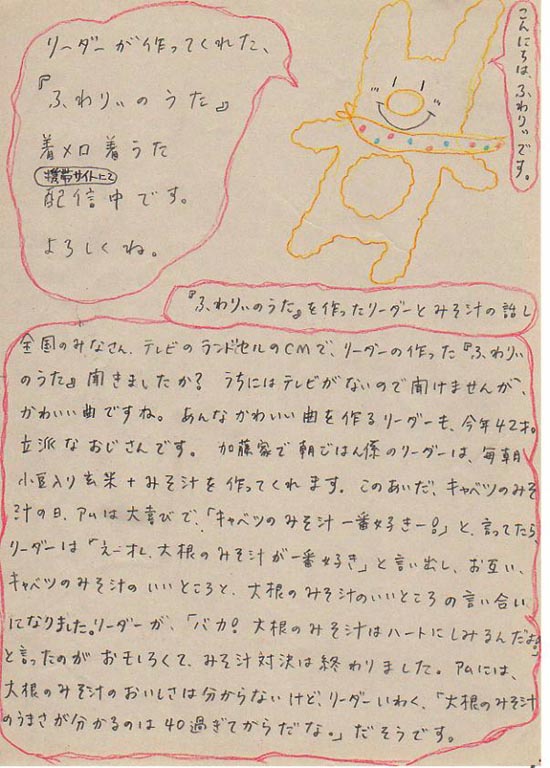 リーダーが作ってくれた、
『ふわりぃのうた』
着メロ着うた
携帯サイトにて
配信中です。
よろしくね。
こんにちは、ふわりぃです。
『ふわりぃのうた』を作ったリーダーとみそ汁の話し
全国のみなさん、テレビのランドセルのCMで、リーダーの作った『ふわりぃ
のうた』聞きましたか? うちにはテレビがないので聞けませんが、
かわいい曲ですね。あんなかわいい曲を作るリーダーも、今年42才。
立派なおじさんです。加藤家で朝ごはん係のリーダーは、毎朝
小豆入り玄米+みそ汁を作ってくれます。このあいだ、キャベツのみそ
汁の日、アムは大喜びで、「キャベツのみそ汁一番好きー!」と、言ってたら、
リーダーは「えーオレ、大根のみそ汁が一番好き」と言い出し、お互い、
キャベツのみそ汁のいいところと、大根のみそ汁のいいところの言い合い
になりました。リーダーが、「バカ! 大根のみそ汁はハートにしみるんだよ!」
と言ったのがおもしろくて、みそ汁対決は終わりました。アムには、
大根のみそ汁のおいしさは分からないけど、リーダーいわく、「大根のみそ汁
のうまさが分かるのは40過ぎてからだな。」だそうです。